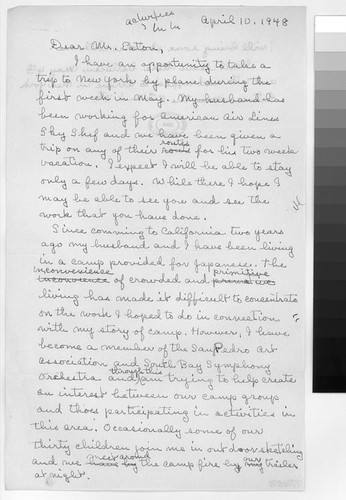 April 10, 1948
Dear Mr. Eaton,
I have an opportunity to take a
trip to New York by plane during the
first week in May. My husband has
been working for American Air Lines
Sky Chef and we have been given a
routes
trip on any of their route for his two week
vacation. I expect I will be able to stay
only a few days. While there I hope I
may be able to see you and see the
work that you have done.
Since comming to California two years
ago my husband and I have been living
in a camp provided for Japanese. The
inconvenience primitive
inconvence of crowded and
living has made it difficult to concentrate
on the work I hoped to do in connection
with my story of camp. However, I have
become a member of the San Pedro Art
Association and South Bay Symphony
through this
Orchestra and am trying to help create
an interest between our camp group
and those participating in activities in
this area. Occasionally some of our
thirty children join me in out door sketching
meet around our
and we have by the camp fire by my trailer
at night.